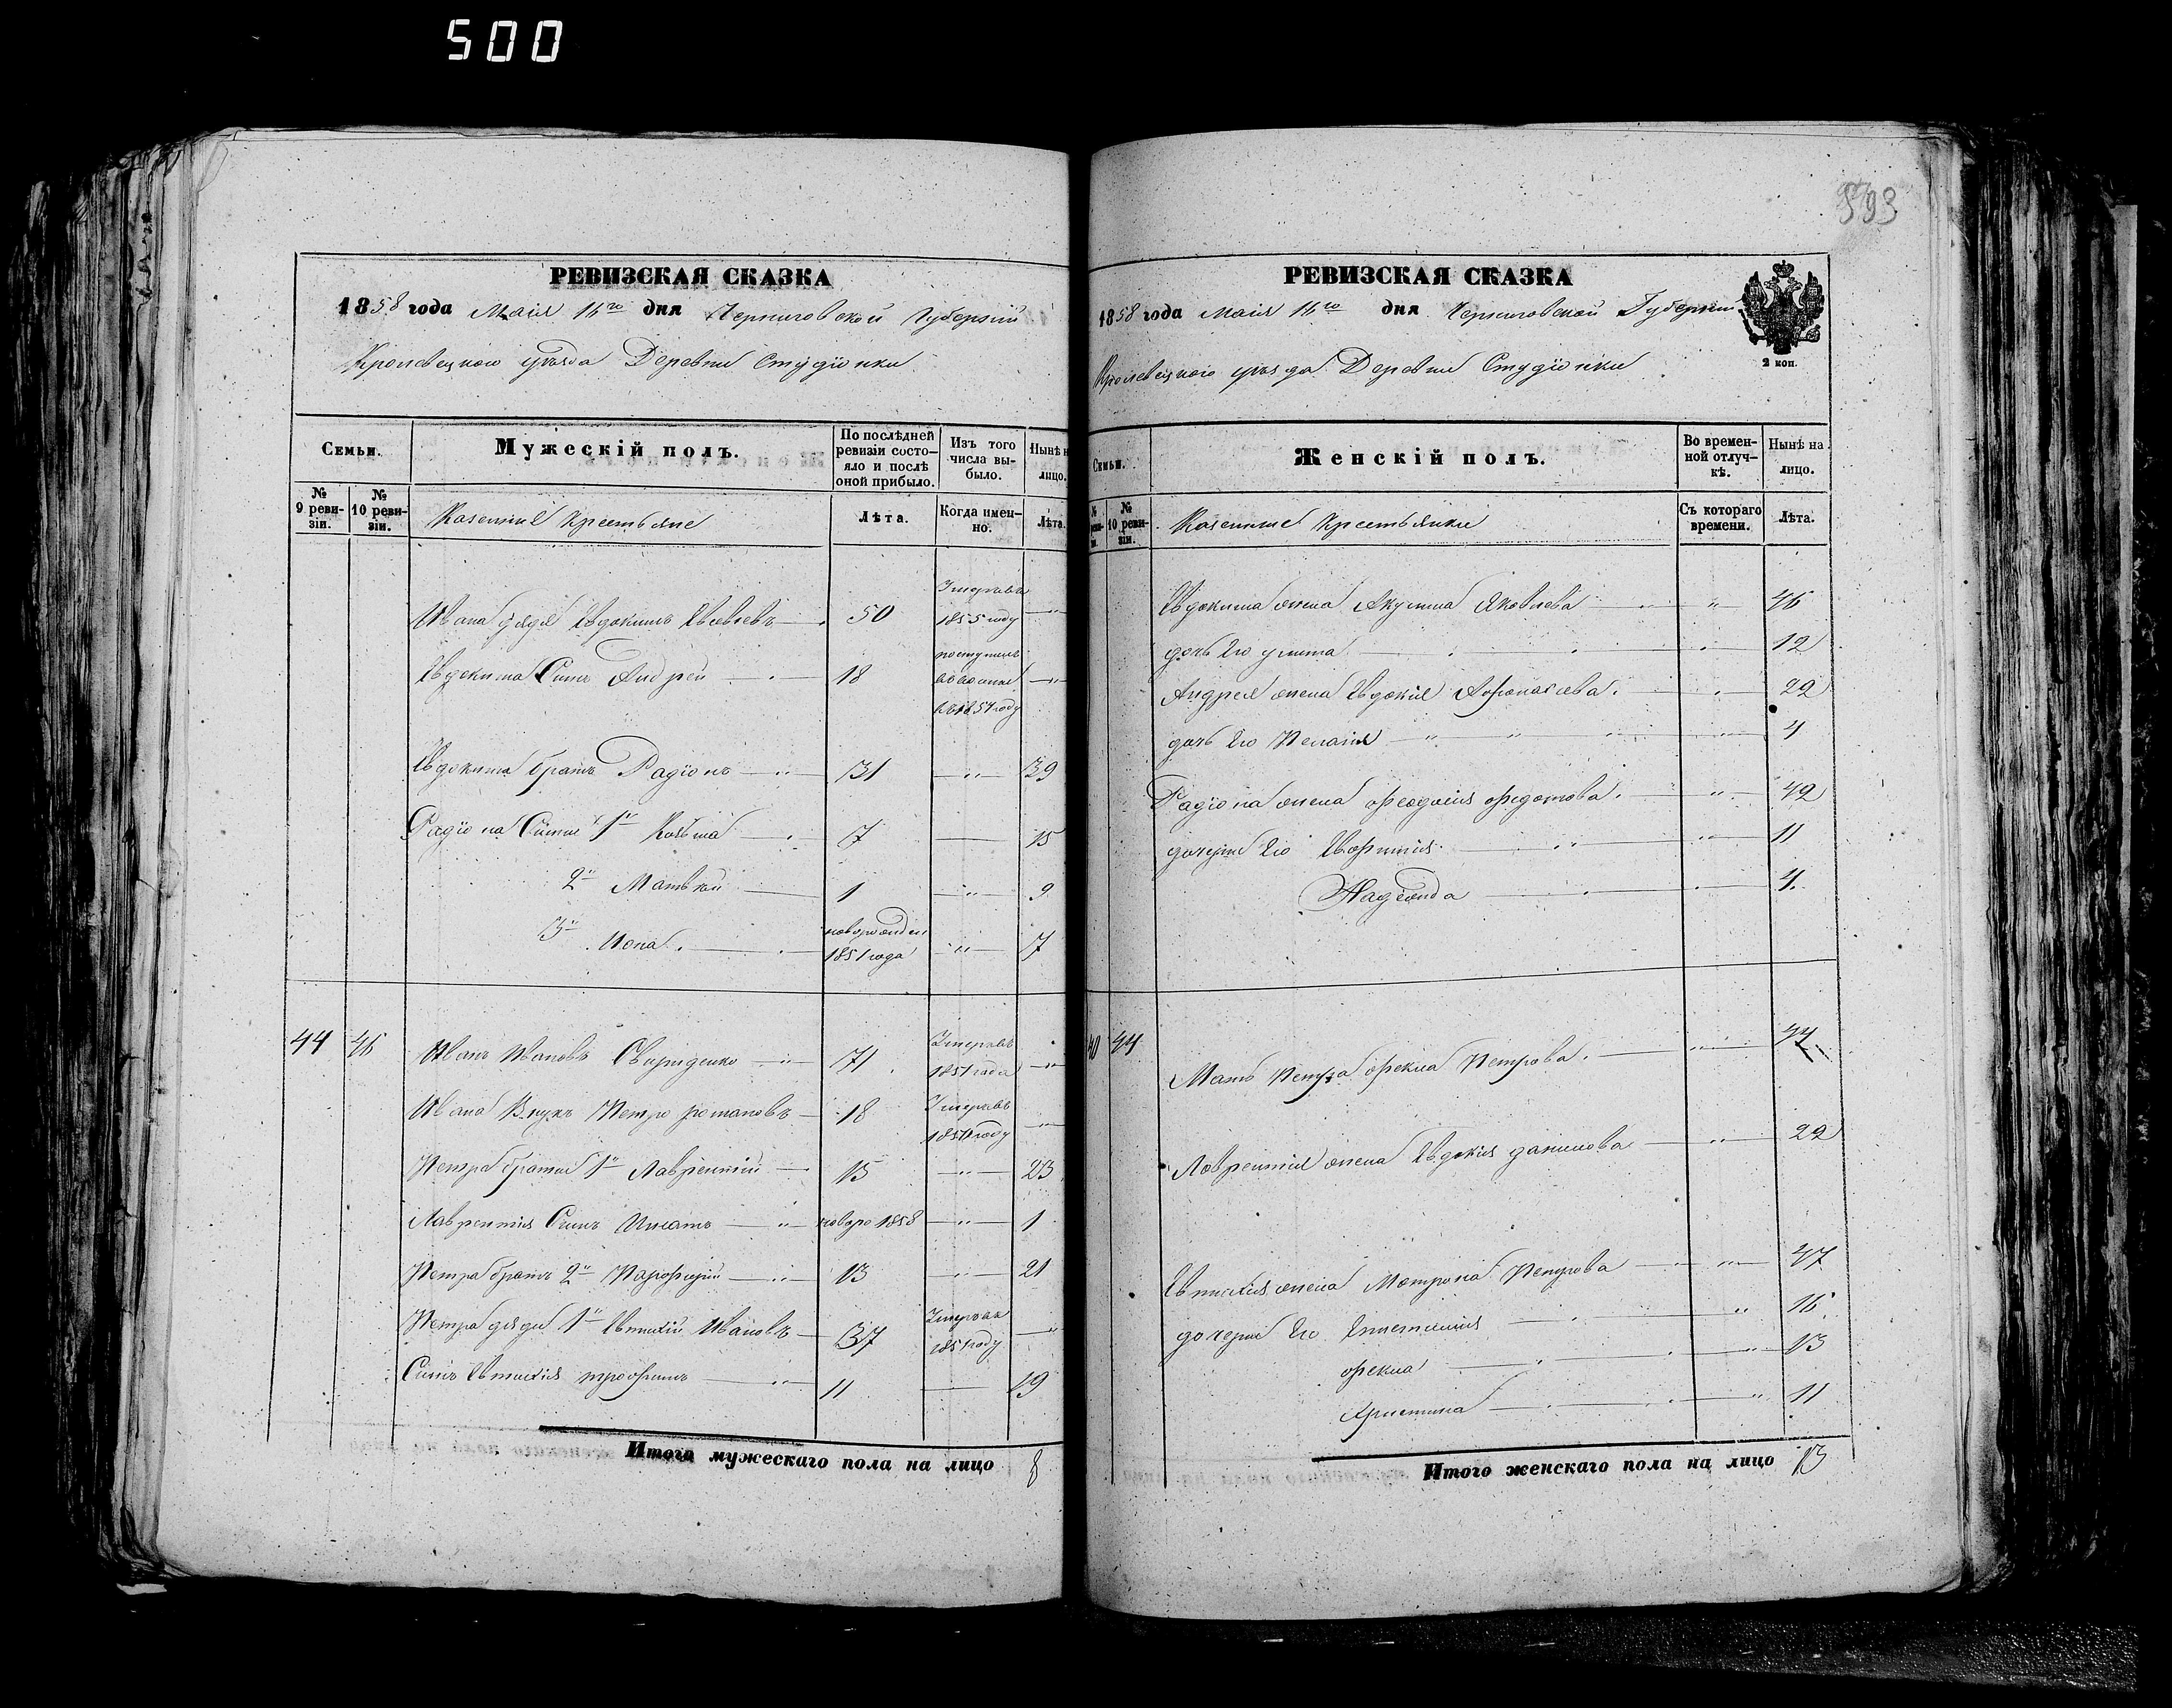 500
593
РЕВИЗСКАЯ СКАЗКА
1858 года Маія 16го дня Черниговской Губерніи
Кролевецкого уѣзда Деревни Студіонки
Семьи.
Мужескій полъ.
По послѣдней ревизіи состояло и послѣ оной прибыло.
Изъ того числа выбыло.
Нынѣ на лицо.
№ 9 ревизіи.
№ 10 ревизіи.
Казенние крестьяне
Лѣта.
Когда именно.
Лѣта.
Ивана дядя Евдокимъ Евсевіевъ 50 Умеръ въ 1855 году
Евдокима Синъ Андрей 18 поступилъ 1854 году
Евдокима братъ Радіонъ — 31 — 39
Радіона Сини 1й Козьма 7 — 15
2й Матвей — 1 — 9
3й Иона — новорожден 1851 года — 7
44 46 Иванъ Ивановъ Свириденко — 71 Умеръ въ 1851 года
Ивана Внукъ Петро романовъ — 18 Умеръ въ году
Петра братья 1й Лаврентій — 15 — 23
Лаврентія Синъ Игнатъ — новоро 1858 — 1
Петра братъ 2й Парфирій — 13 — 21
Петра дяди 1й Евтихій Ивановъ — 37 Умеръ 1851 году
Синъ Евтихія трофимъ — 11 — 19
Итого мужескаго пола на лицо 8
РЕВИЗСКАЯ СКАЗКА
1858 года Маія 16го дня Черниговской Губерніи
2 коп.
Кролевецкого уѣзда Деревни Студіонки
Семьи.
Женскій полъ.
Во временной отлучкѣ.
Нынѣ на лицо.
№ 10 ревизіи.
Казенние крестьянки
Съ котораго времени.
Лѣта.
Евдокима жена Акулина Яковлева — 46
дочь Его улита — 12
Андрея жена Евдокія Афонасіева — 22
дочь Его Пелагія — 4
Радіона жена феодосія федотова — 42
дочери Его Евфимія — 11
Надежда — 4
40 44 Мать Петра фекла Петрова — 44
Лаврентія жена Евдокія данилова — 22
Евтихія жена Матрона Петрова — 47
дочери Его — 16
фекла — 13
Христина — 11
Итого женскаго пола на лицо 13